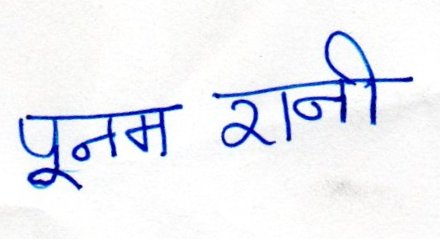 पूनम रानी